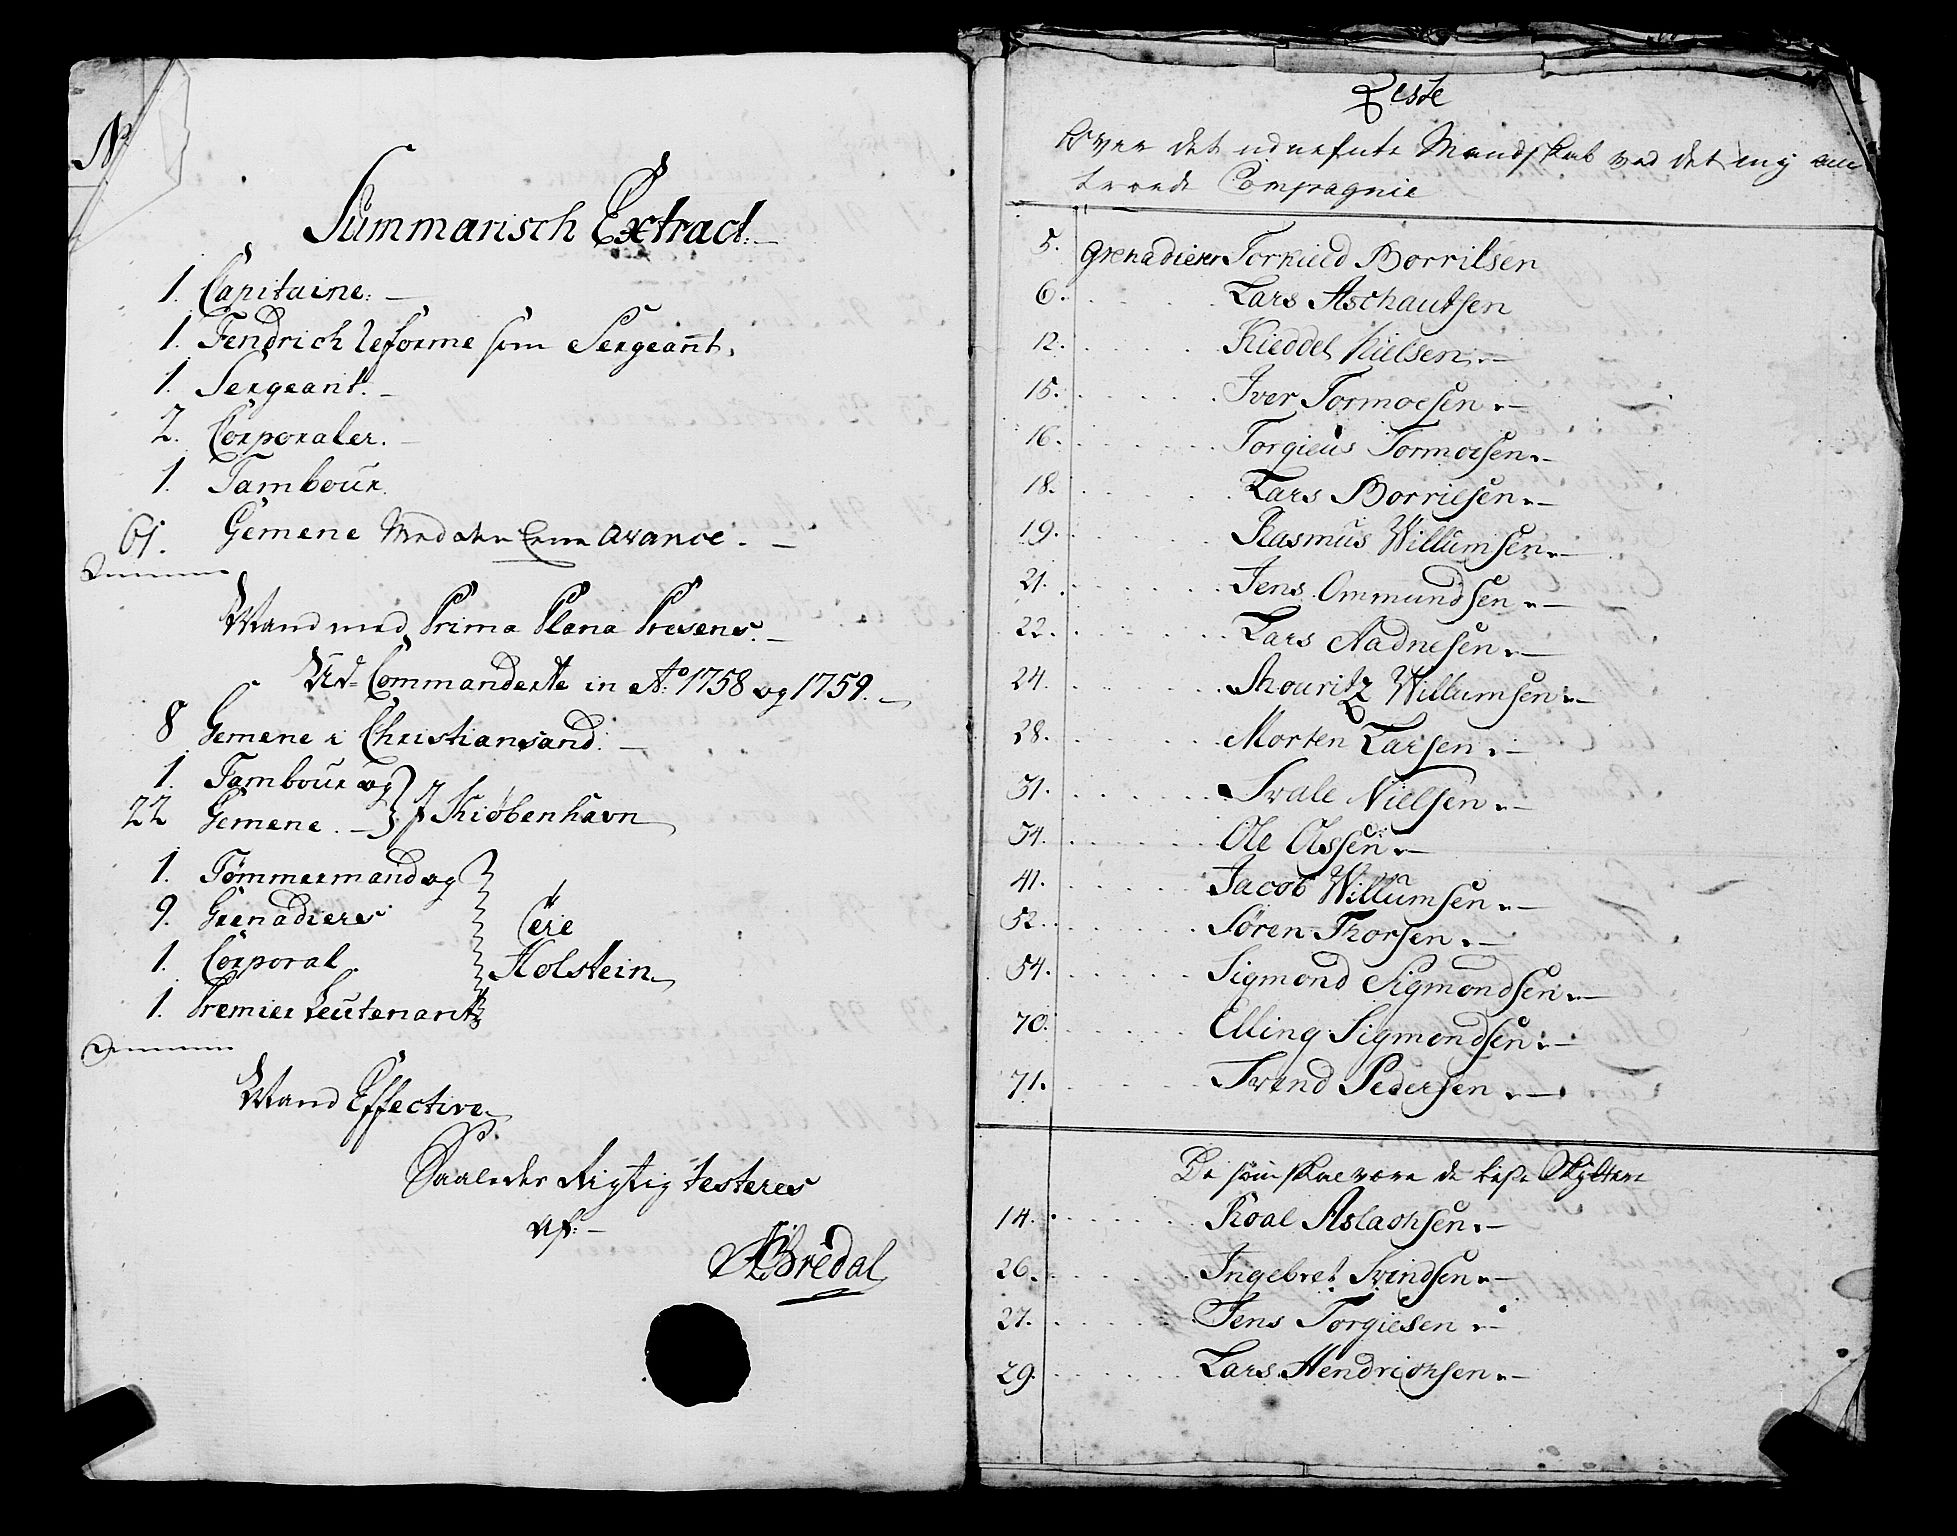 No
Summarisch Extract.
1. Capitaine.
1. Fendrich Reforme som Sergeant.
1. Sergeant.
2. Corporaler.
1. Tambour.
61. Gemene Med den Ene Avance.
Mand med Prima Plana Presens.
Ud-Commanderte in Ao 1758 og 1759.
8 Gemene i Christiansand.
1. Tambour og
22 Gemene. } J Kiøbenhavn
1. Tömmermand og
9. Grenadierer
1. Corporal.
1. Premier Leutenant
Ere
Holstein
Mand Effective
Saaledes Rigtig testeres
af:
Bredal
Leste
Over det udnefnte Mandskab ved det mig an
troede Compagnie
5. Grenadierer Torkield Borrilsen
6. Lars Aschautsen
12. Kieddel Kielsen
15. Iver Tormoesen
16. Torgieus Tormoesen
18. Lars Borrilsen
19. Rasmus Willumsen
21. Jens Ommundsen
22. Lars Aadnesen
24. Mouritz Willumsen
28. Morten Larsen
31. Svale Nielsen
34. Ole Olssen
41. Jacob Willumsen
52. Sören Thorsen
54. Sigmond Sigmondsen
70. Elling Sigmondsen
71. Svend Pedersen
De som skal være de beste Skyttere
14. Roal Aslachsen
26. Ingebret Svendsen
27. Jens Torgiesen
29. Lars Hendrichsen